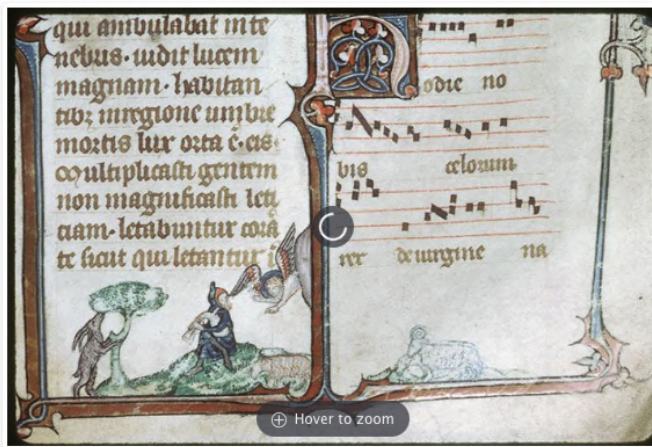 qui ambulabat in te
nebris. uidit lucem
magnam. habitan
tibꝫ in regione umbre
mortis lux orta ē. eis
Multiplicasti gentem
non magnificasti leti
ciam. letabuntur corā
te sicut qui letantur i
Hodie no
bis celorum
rex de uirgine na
Hover to zoom